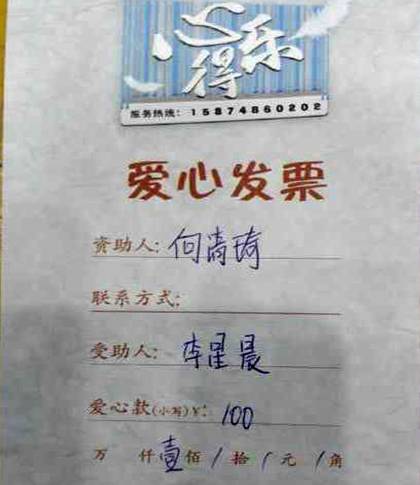 心得乐
服务热线：15874860202
爱心发票
资助人：何清琦
联系方式：
受助人：李星晨
爱心款(小写)¥：100
万 仟壹佰/拾/元/角